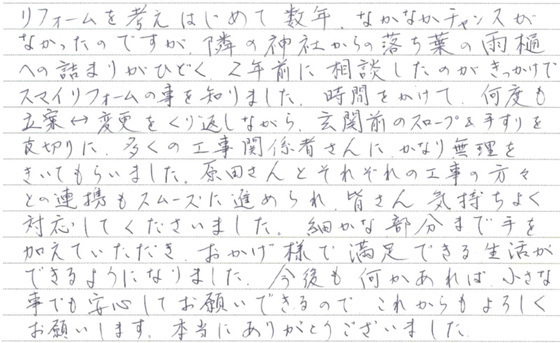 リフォームを考えはじめて数年、なかなかチャンスが
なかったのですが、隣の神社からの落ち葉の雨樋
への詰まりがひどく、2年前に相談したのがきっかけで
スマイリフォームの事を知りました。時間をかけて、何度も
立案↔変更をくり返しながら、玄関前のスロープ&手すりを
皮切りに、多くの工事関係者さんに、かなり無理を
きいてもらいました。原田さんとそれぞれの工事の方々
との連携もスムーズに進められ、皆さん気持ちよく
対応してくださいました。細かな部分まで手を
加えていただき、おかげ様で満足できる生活が
できるようになりました。今後も何かあれば、小さな
事でも安心してお願いできるので、これからもよろしく
お願いします。本当にありがとうございました。